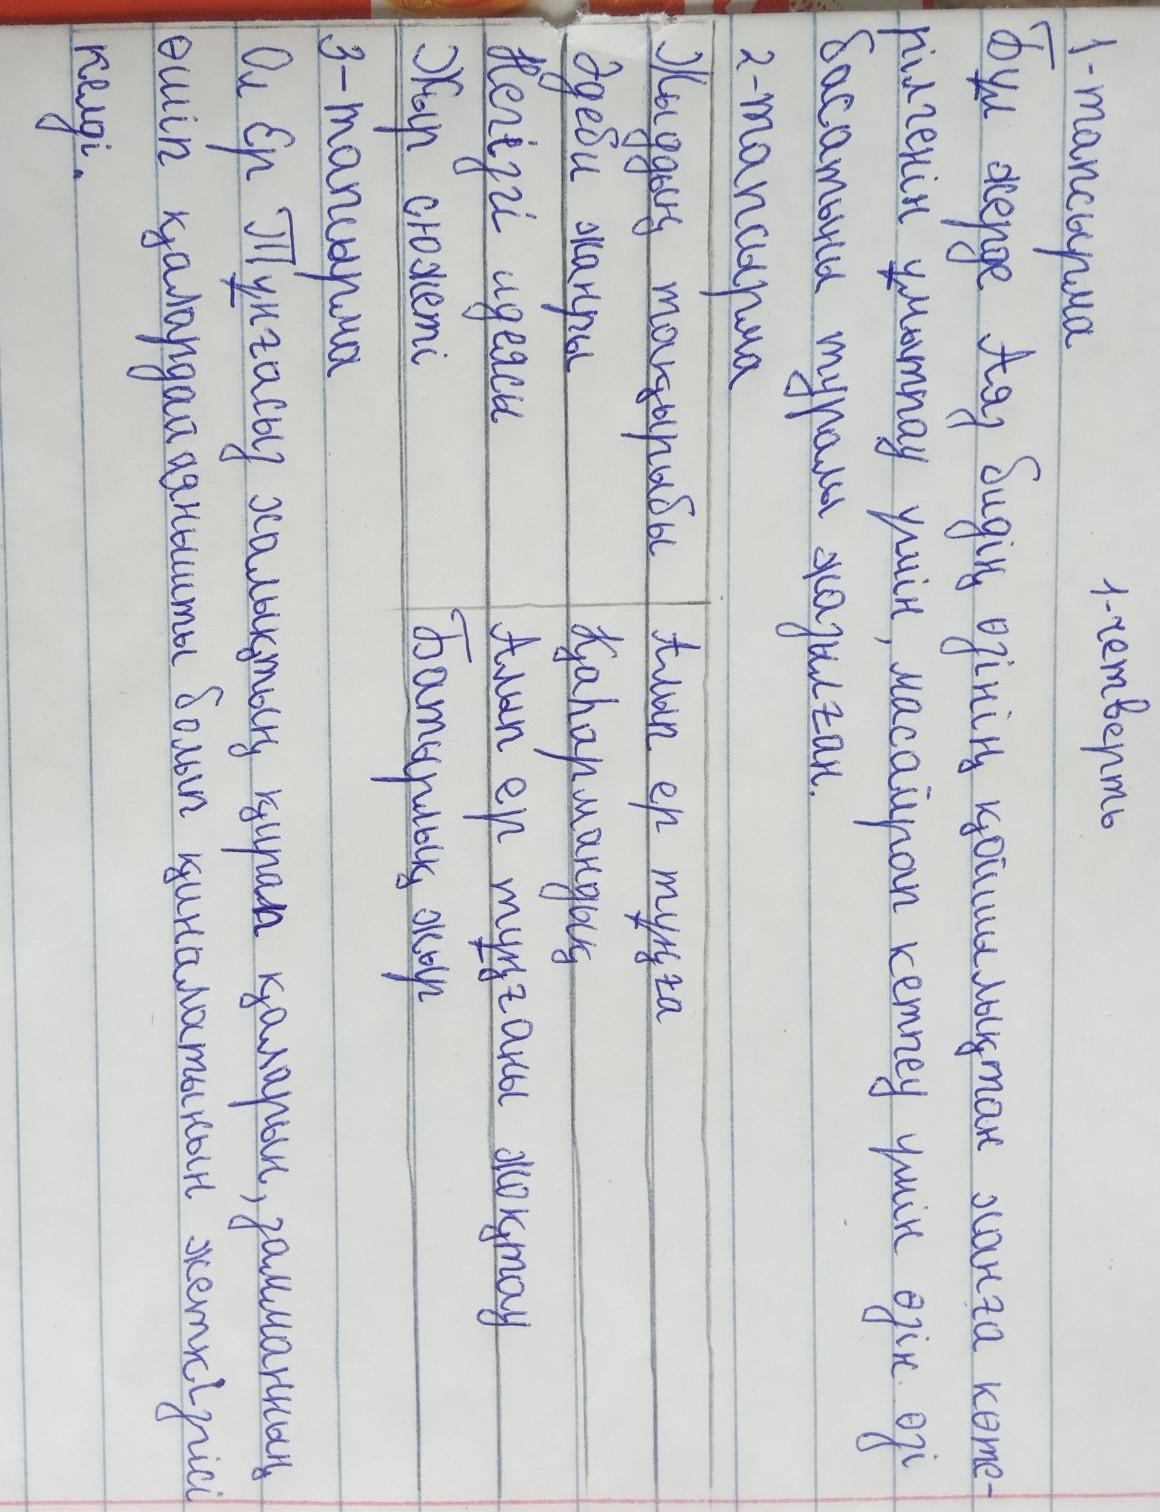 1-четверть
1-тапсырма
Бұл жерде Аяз бидің өзінің қойшылықтан ханға көте-
рілгенін ұмытпау үшін, масайрап кетпеу үшін өзін өзі
басатыны туралы жазылған.
2-тапсырма
Жыддың тақырыбы Алып ер тұңға
Әдеби жанры Қаһармандық
Негізгі идеясы Алып ер тұңғаны жоқтау
Жыр сюжеті Батырлық жыр
3-тапсырма
Ол Ер Тұнғасыз халықтың қирап қаларын, замманның
өшіп қалардай аянышты болып қиналатынын жеткізгісі
келді.